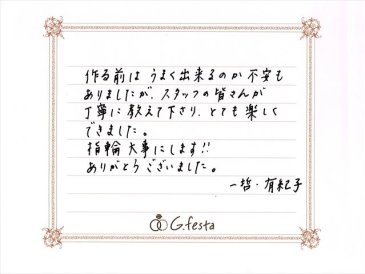 作る前は うまく出来るのか 不安も
ありましたが、スタッフの皆さんが
丁寧に 教えて下さり、とても 楽しく
できました。
指輪 大事にします!!
ありがとうございました。
一哲・有紀子
G.festa